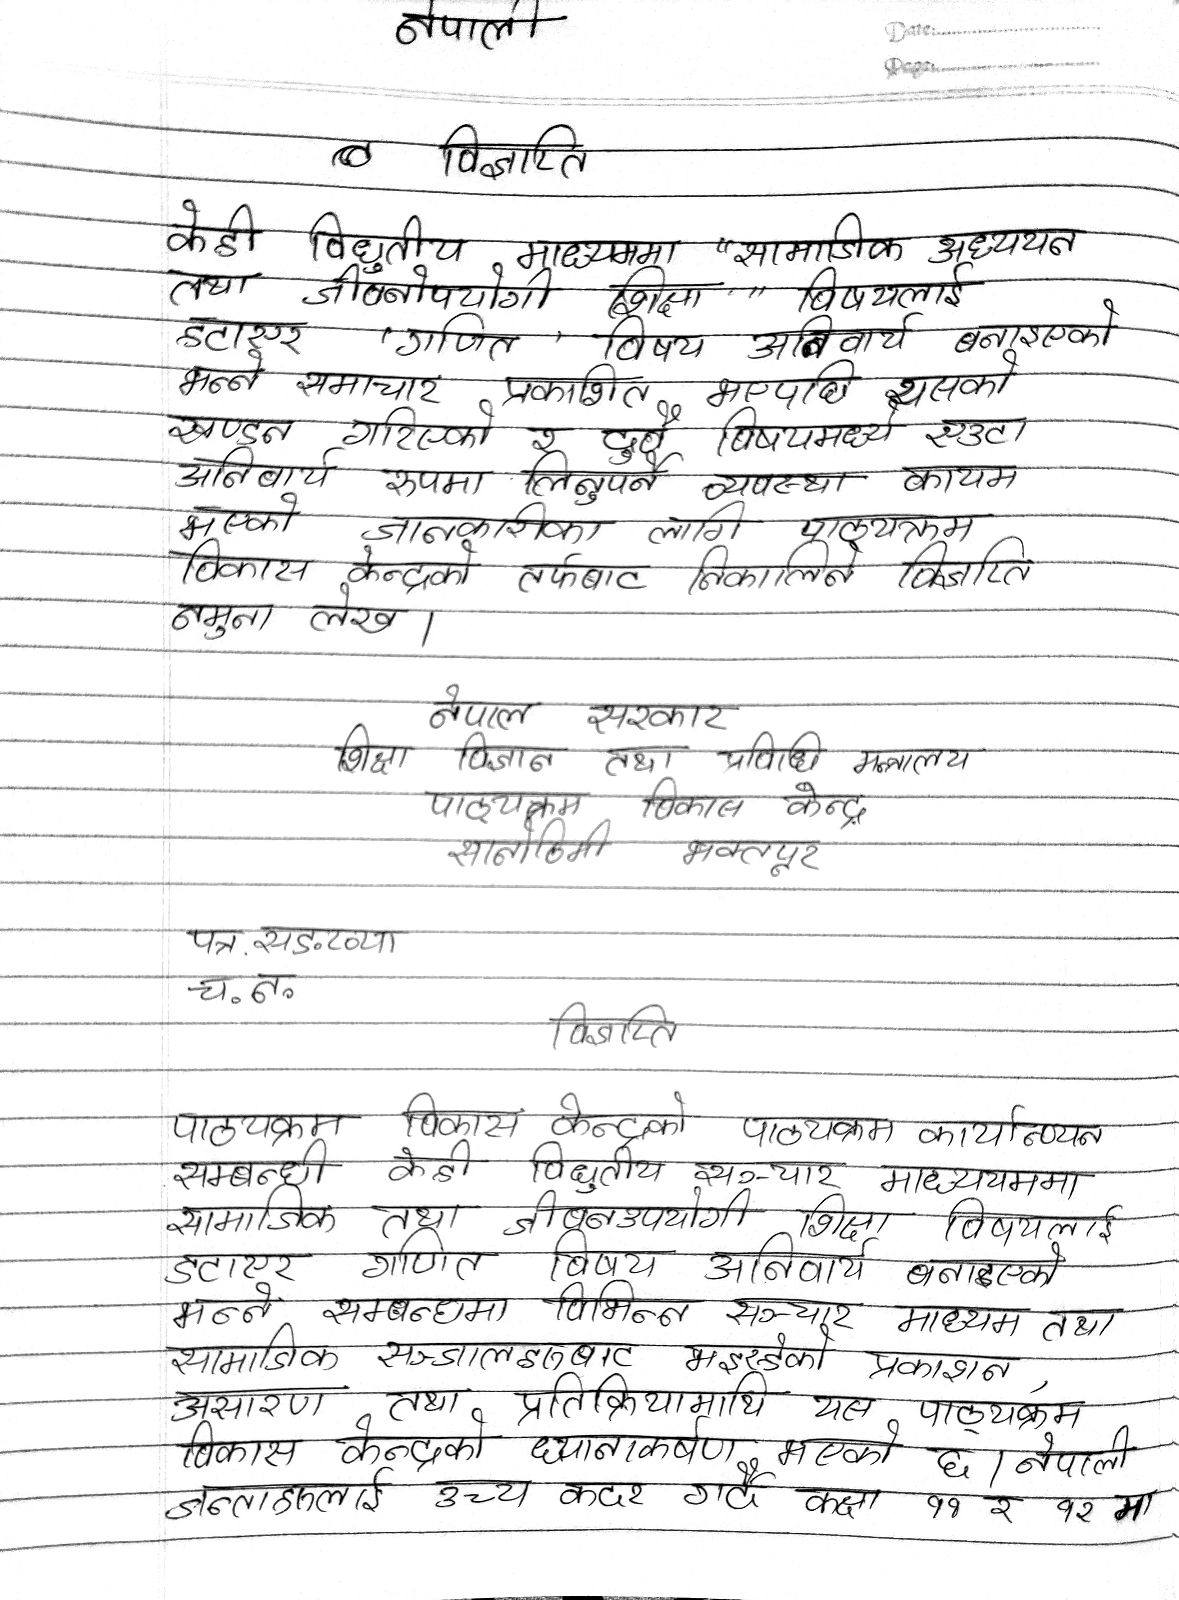 नेपाली
Date:
Page:
विज्ञप्ति
केही विधुतीय माध्यममा "सामाजिक अध्ययन
तथा जीवनोपयोगी शिक्षा" विषयलाई
हटाएर 'गणित' विषय अनिवार्य बनाइएको
भन्ने समाचार प्रकाशित भएपछि यसको
खण्डन गरिएको र दुवै विषयमध्ये एउटा
अनिवार्य रुपमा लिनुपर्ने व्यवस्था कायम
भएको जानकारीका लागि पाठ्यक्रम
विकास केन्द्रको तर्फबाट निकालिने विज्ञप्ति
नमुना लेख ।
नेपाल सरकार
शिक्षा विज्ञान तथा प्रविधि मन्त्रालय
पाठ्यक्रम विकास केन्द्र
सानोठिमी भक्तपूर
पत्र. सङ्ख्या
च. न.
विज्ञप्ति
पाठ्यक्रम विकास केन्द्रको पाठ्यक्रम कार्यान्वयन
सम्बन्धी केही विधुतीय सञ्चार माध्ययममा
सामाजिक तथा जीवनउपयोगी शिक्षा विषयलाई
हटाएर गणित विषय अनिवार्य बनाइएको
भन्ने सम्बन्धमा विभिन्न सञ्चार माध्यम तथा
सामाजिक सञ्जालहरुबाट भइरहेको प्रकाशन,
प्रसारण तथा प्रतिक्रियामाथि यस पाठ्यक्रम
विकास केन्द्रको ध्यानाकर्षण भएको छ । नेपाली
जन्ताहरुलाई उच्च कदर गर्दै कक्षा ११ र १२ मा